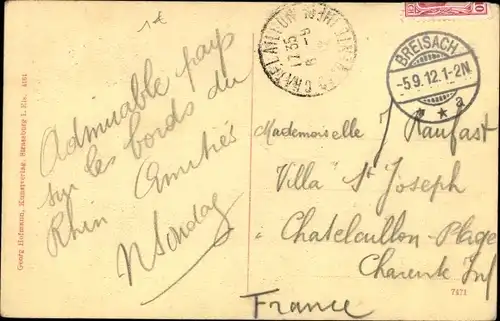 1€
Admirable pays
sur les bords du
Rhin Amitiés
Georg Hofmann, Kunstverlag, Strassburg i. Els. 4484
CHATELAILLON
17 35
BREISACH
-5.9.12.1-2N
* * a
10
Mademoiselle J Haufast
Villa St Joseph
Chatelaillon-Plage
Charente Inf
France
7471